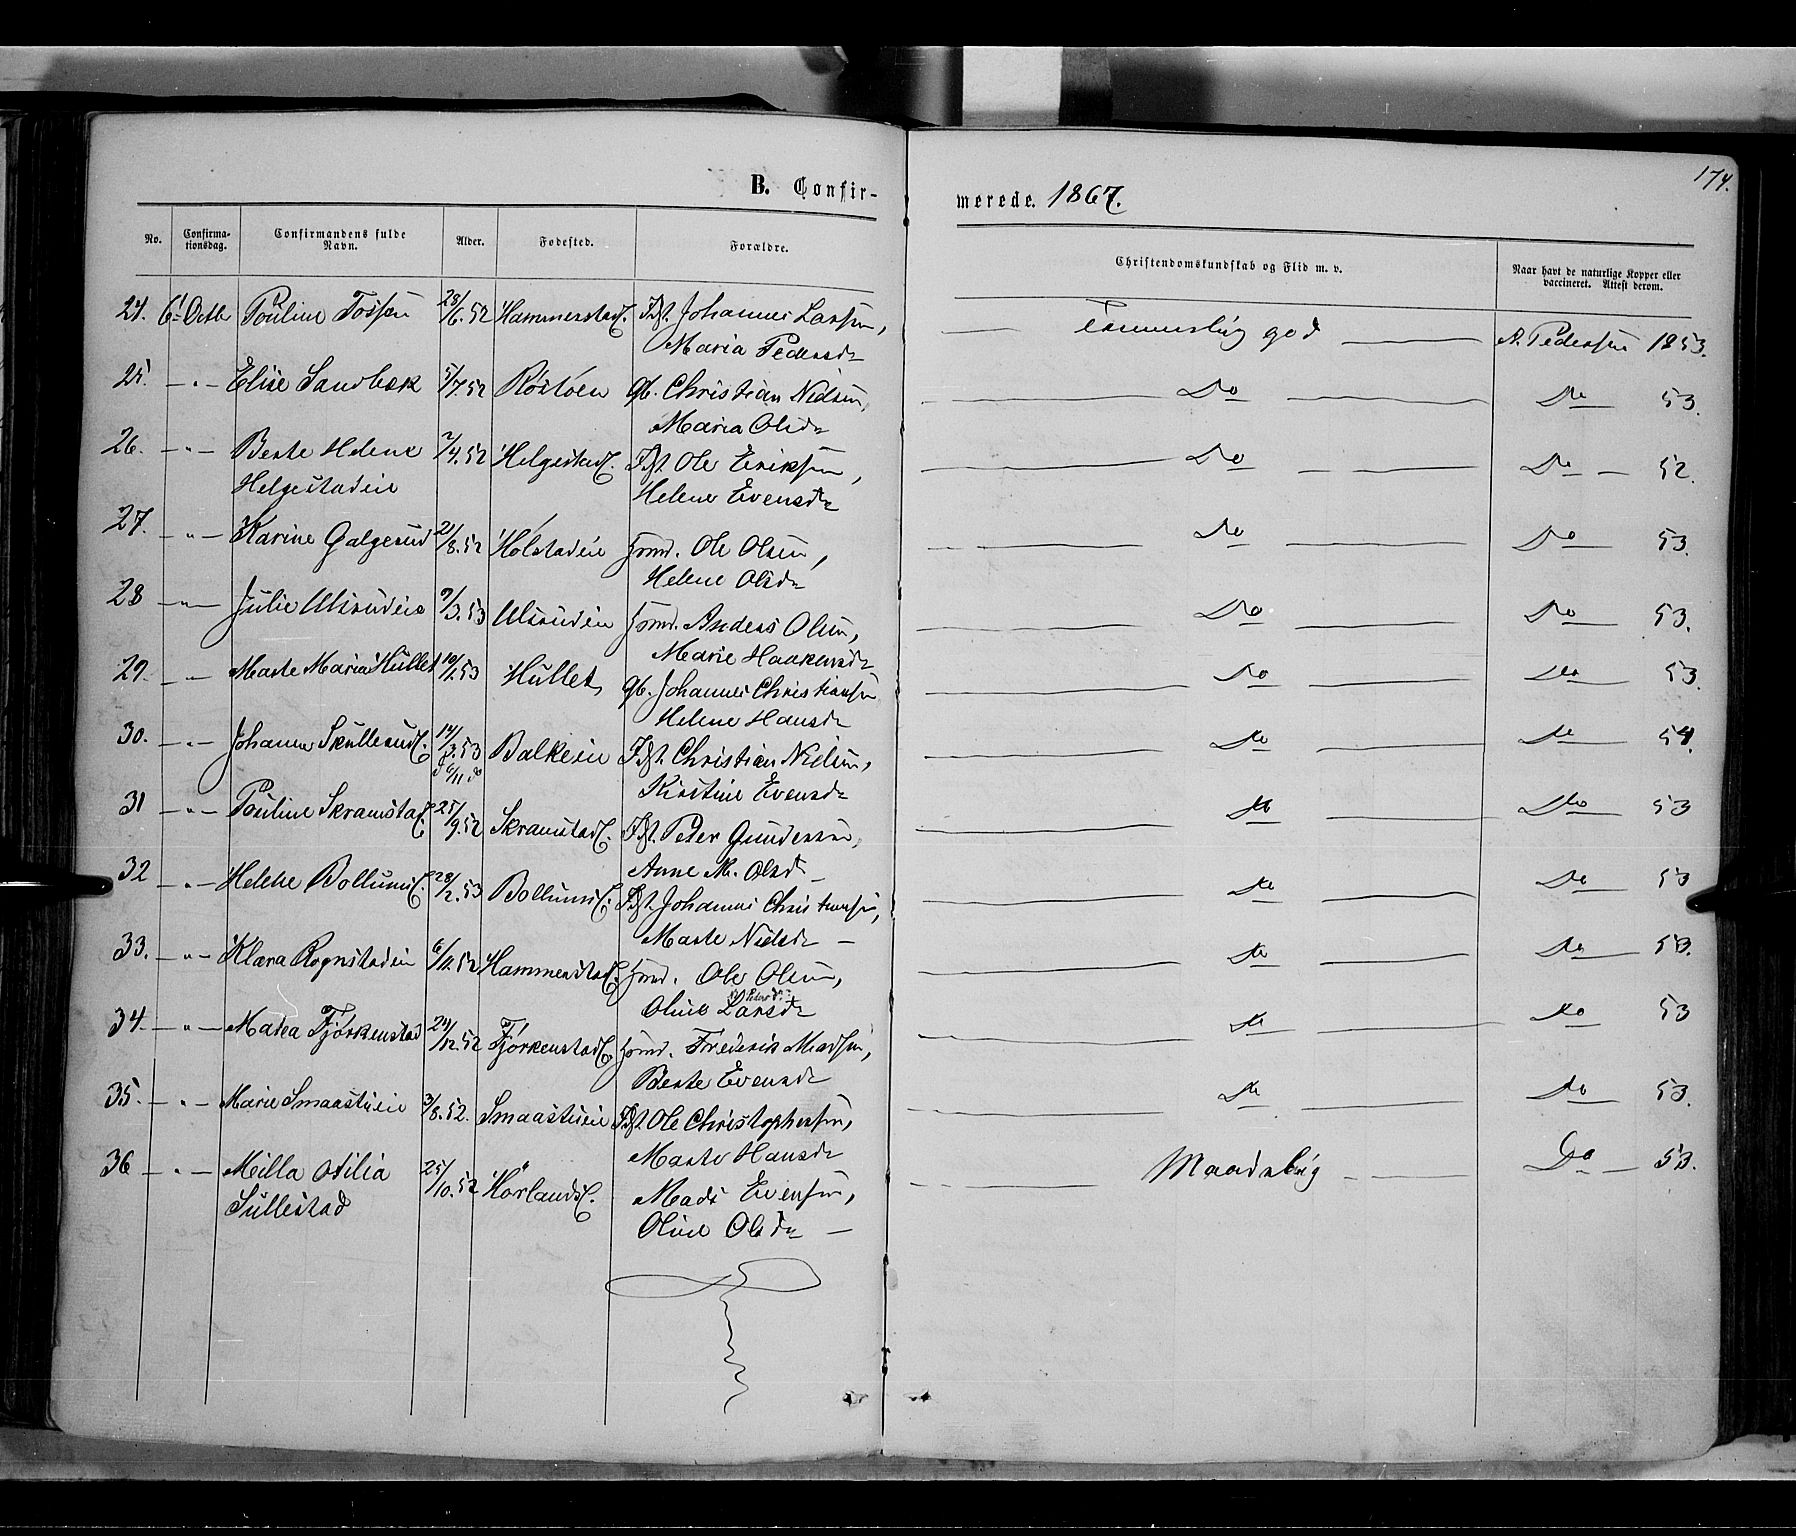 174.
B. Confir-
merede. 1867.
No. Confirma-tionsdag. Confirmandens fulde Navn. Alder. Fødested. Forældre. Christendomskundskab og Flid m. v. Naar havt de naturlige Kopper eller vaccineret. Attest derom.
24. 6 Octbr Pouline Fossen 28/6.52 Hammerstad. Johannes Larsen, Temmelig god A. Pedersen 1853.
Maria Pedersd
25. — " — Elise Sandbæk 5/7.52 Rostøen gb. Christian Nielsen, Do Do 53.
Maria Olsd
26. — " — Berte Helene 7/4.52 Helgestad Ole Eriksen, Do Do 52.
Helgestadeie Helene Evensd
27. — " — Karine Galgerud 21/8.52 Holstadeie Ole Olsen, Do Do 53.
Helene Olsd
28 — " — Julie Ulsrudeie 9/3.53 Ulsrudeie Anders Olsen, Do Do 53.
Marie Haakensd
29. — " — Marte Maria Hullet 10/1.53 Hullet gb. Johannes Christiansen Do Do 53.
Helene Hansd
30. — " — Johanne Skullerud 14/3.53 Balkeeie Christian Nielsen, Do Do 54.
Kirstine Evensd
31 — " — Pouline Skramstad 25/9.52 Skramstad Peter Gundersen, Do Do 53
Anne M. Olsd —
32 — " — Helene Bollum 28/2.53 Bollum Johannes Christensen, Do Do 53
Marte Nielsd —
33. — " — Klara Rognstadeie 6/11.52 Hammerstad Ole Olsen, Do Do 53.
Oline Larsd
Pedersd
34. — " — Mathea Fjørkenstad 24/12.52 Fjørkenstad Frederik Madsen, Do Do 53
Berte Evensd
35. — " — Marie Smaastueie 3/8.52. Smaastueie Ole Christophersen, Do Do 53.
Marte Hansd
36 — " — Milla Otilia 25/10.52 Horland Mads Evensen, Maadelig Do 53.
Sullestad Oline Olsd —